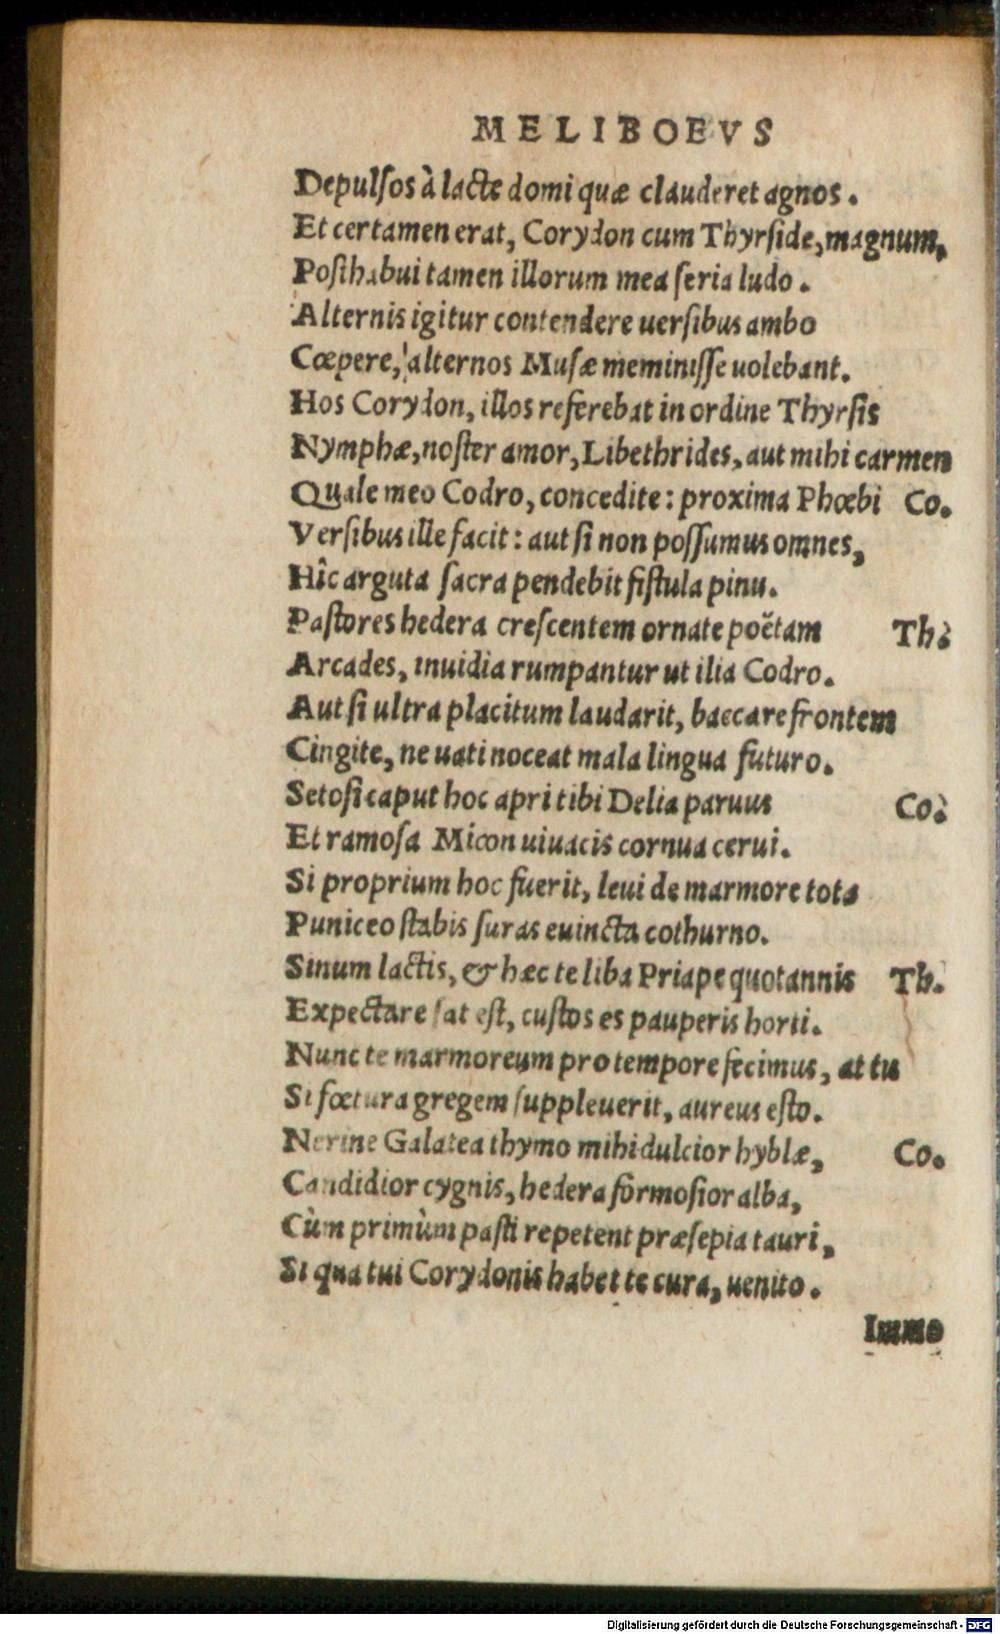 MELIBOEVS
Depulſos à lacte domi quæ clauderet agnos.
Et certamen erat, Corydon cum Thyrſide, magnum,
Poſthabui tamen illorum mea ſeria ludo.
Alternis igitur contendere uerſibus ambo
Cœpere, alternos Muſæ meminiſſe uolebant.
Hos Corydon, illos referebat in ordine Thyrſis
Nymphæ, noſter amor, Libethrides, aut mihi carmen
Quale meo Codro, concedite: proxima Phœbi Co.
Verſibus ille facit: aut ſi non poſſumus omnes,
Hîc arguta ſacra pendebit fiſtula pinu.
Paſtores hedera creſcentem ornate poëtam Th.
Arcades, inuidia rumpantur ut ilia Codro.
Aut ſi ultra placitum laudarit, baccare frontem
Cingite, ne uati noceat mala lingua futuro.
Setoſi caput hoc apri tibi Delia paruus Co.
Et ramoſa Micon uiuacis cornua cerui.
Si proprium hoc fuerit, leui de marmore tota
Puniceo ſtabis ſuras euincta cothurno.
Sinum lactis, & hæc te liba Priape quotannis Th.
Expectare ſat eſt, cuſtos es pauperis horti.
Nunc te marmoreum pro tempore fecimus, at tu
Si fœtura gregem ſuppleuerit, aureus eſto.
Nerine Galatea thymo mihi dulcior hyblæ, Co.
Candidior cygnis, hedera formoſior alba,
Cùm primùm paſti repetent præſepia tauri,
Si qua tui Corydonis habet te cura, uenito.
Immo
Digitalisierung gefördert durch die Deutsche Forschungsgemeinschaft - DFG